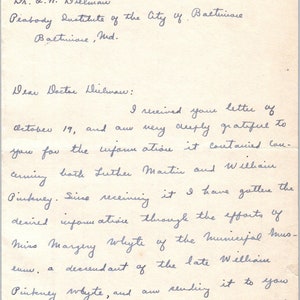 Dr. L. H. Dielman
Peabody Institute of the City of Baltimore
Baltimore, Md.
Dear Doctor Dielman:
I received your letter of
October 19, and am very deeply grateful to
you for the information it contained con-
cerning both Luther Martin and William
Pinkney. Since receiving it I have gotten the
desired information through the efforts of
Miss Margery Whyte of the Municipal Mus-
eum, a descendant of the late William
Pinkney Whyte, and am sending it to you